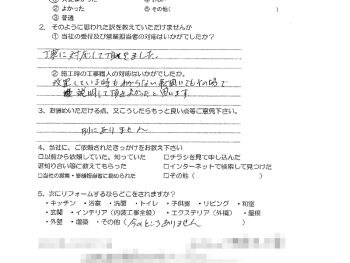 ② よかった ⑤ その他(
③ 普通
2、そのように思われた訳を教えていただけませんか
① 当社の受付及び営業担当者の対応はいかがでしたか?
丁寧に対応して頂きました。
② 施工時の工事職人の対応はいかがでしたか。
改置している時もわからない質問にもその場で
説明して頂きよかったと思います
3、お褒めいただける点、又こうしたらもっと良い点等ご意見下さい。
別にありません
4、当社に、ご依頼されたきっかけをお教え下さい
□以前から依頼していた。知っていた □チラシを見て申し込んだ
□知り合い等に教えてもらった □インターネットで検索して見つけた
□当社の営業・修繕担当者に勧められた □その他(
5、次にリフォームするならどこをされますか?
・キッチン ・浴室 ・洗面 ・トイレ ・子供室 ・リビング ・和室
・玄関 ・インテリア(内装工事全般) ・エクステリア(外構) ・屋根
・外壁 ・増築 ・その他(今のところありません